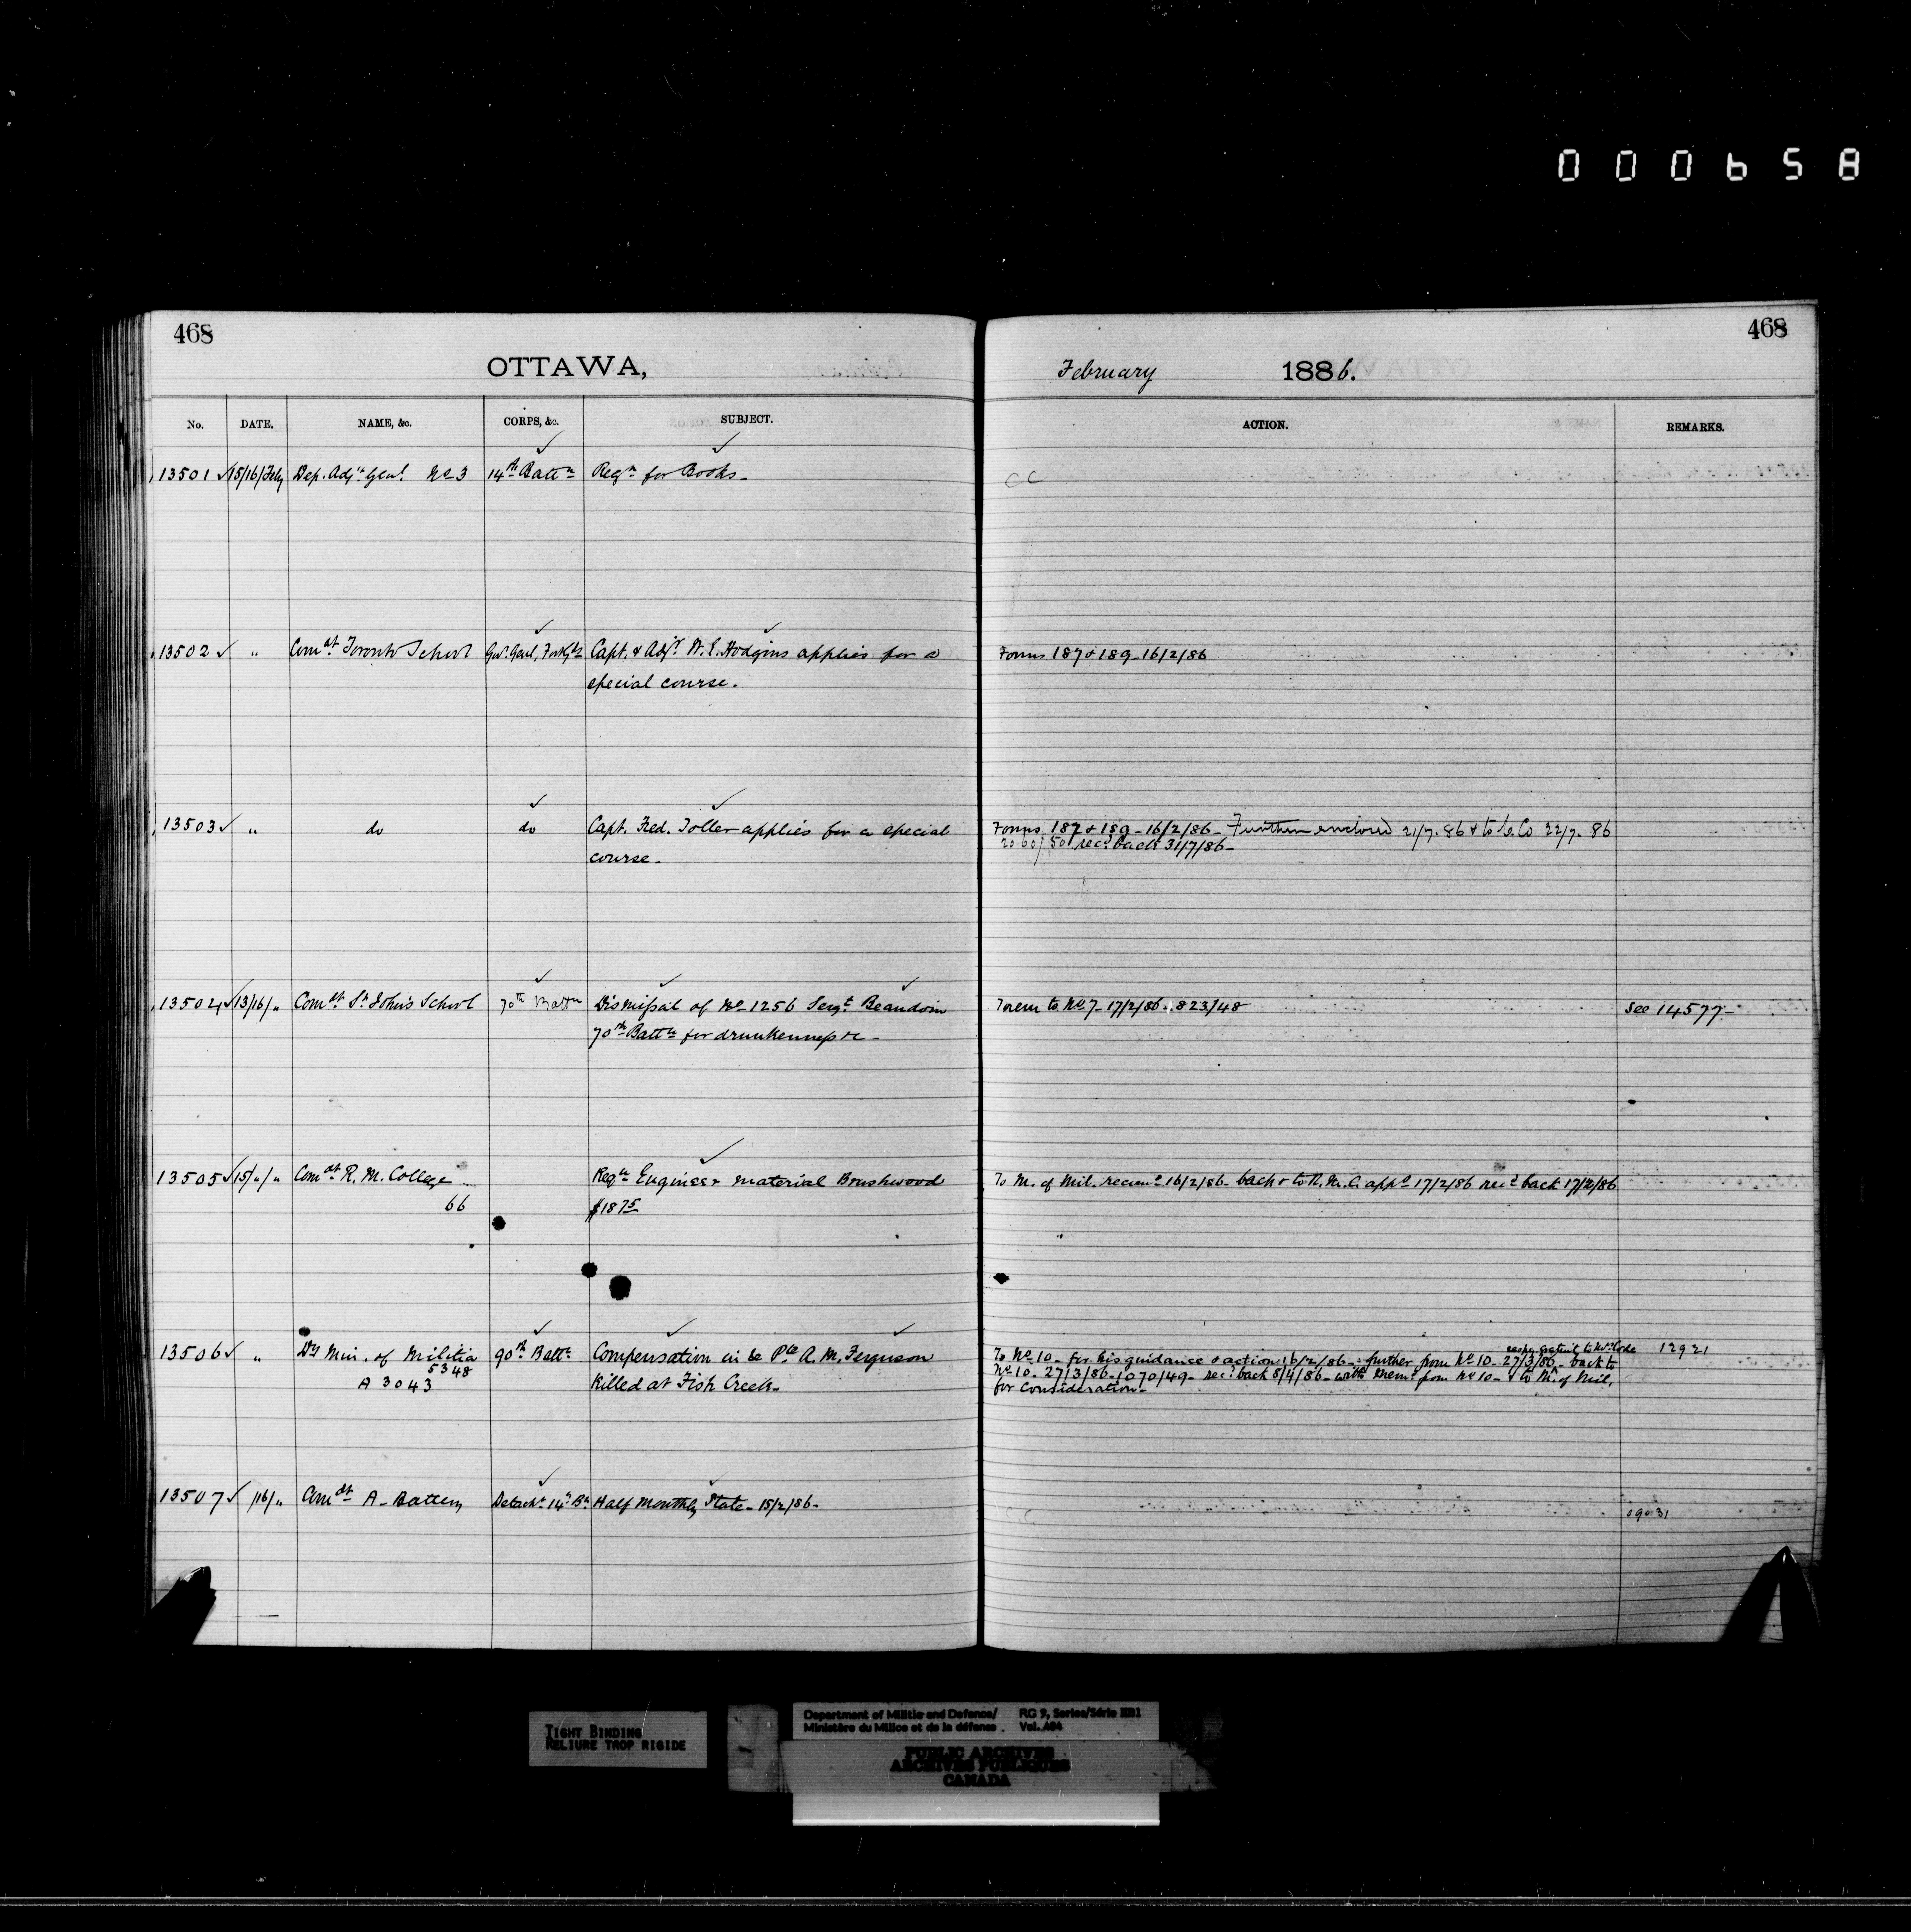 000658
468
468
OTTAWA,
February 1886.
No. DATE, NAME, &c. CORPS, &c. SUBJECT. ACTION. REMARKS.
13501 15/16/Feby Dep. Adjt. Genl. No 3 14th Battn Reqn for Books - CC
13502 " Comdt Toronto School Govr. Genl. Foot Gds Capt. & Adjt. W. E. Hodgins applies for a Forms 187 & 189 - 16/2/86
special course.
13503 " do do Capt. Fred. Toller applies for a special Forms 187 & 189 - 16/2/86 - Further enclosed 21/7.86 & to G. Co 22/7.86
course - recd back 31/7/86 -
13504 13/16/" Comdt St. John's School 70th Battn Dismissal of No 1256 Sergt. Beaudoin Mem to No 7 - 17/2/86 - 823/48 See 14577 -
70th Battn for drunkenness &c -
13505 15/"/" Comdt R. M. College Reqn Engineer material Brushwood To M. of Mil. recomd 16/2/86 - back & to R. M. C. appd 17/2/86 recd back 17/2/86
66 $1875
13506 " Dy Min. of Militia 90th Battn Compensation in re Pte A. M. Ferguson 12921
5348
A 3043 Killed at Fish Creek -
To No 10 - for his guidance & action 16/2/86 - further from No 10 - 27/3/86 - back to
No 10 - 27/3/86 - 1070/49 - recd back 8/4/86 - with memo from No 10 - & to M. of Mil.
for consideration -
13507 /16/" Comdt A - Battery Detacht 14th Bn Half Monthly State - 15/2/86 - CC
09031
TIGHT BINDING
RELIURE TROP RIGIDE
Department of Militia and Defence/ RG 9, Series/Série IIB1
Ministère du Milice et de la défense. Vol. 484
PUBLIC ARCHIVES
ARCHIVES PUBLIQUES
CANADA